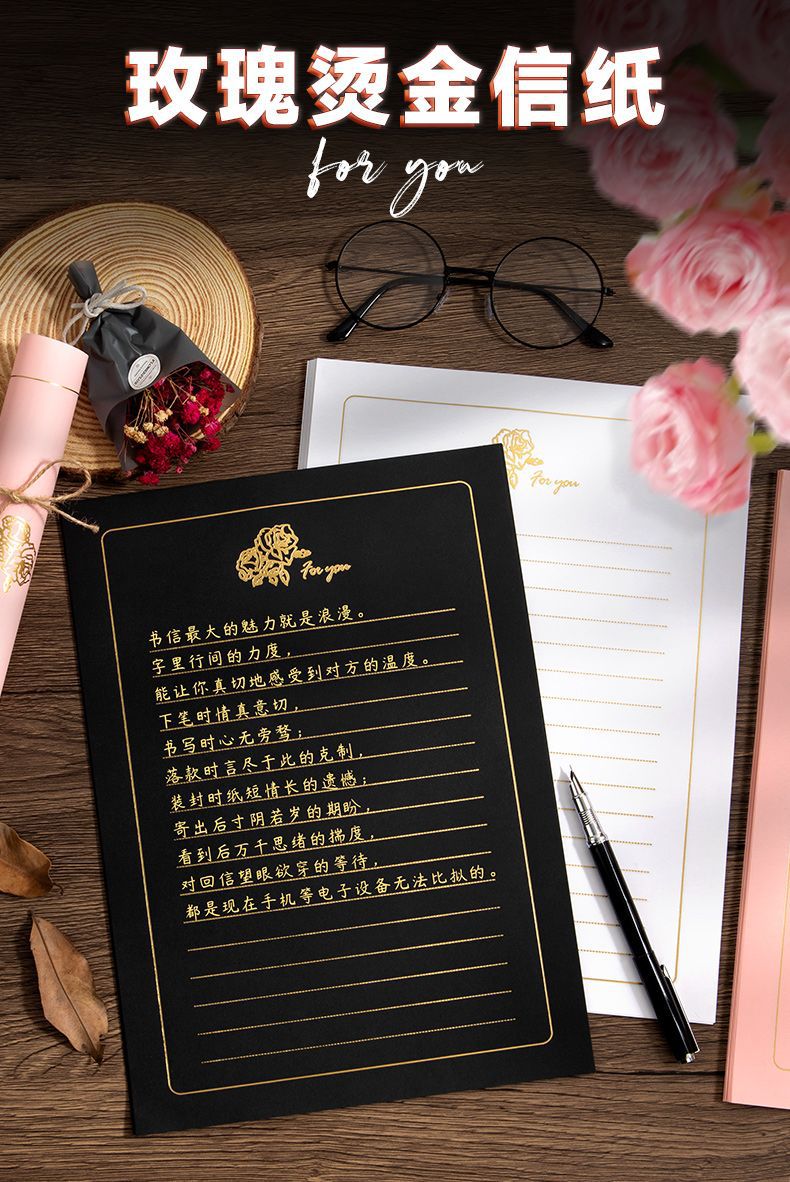 玫瑰烫金信纸
for you
For you
For you
书信最大的魅力就是浪漫。
字里行间的力度，
能让你真切地感受到对方的温度。
下笔时情真意切，
书写时心无旁骛；
落款时言尽于此的克制，
装封时纸短情长的遗憾；
寄出后寸阴若岁的期盼，
看到后万千思绪的揣度，
对回信望眼欲穿的等待，
都是现在手机等电子设备无法比拟的。